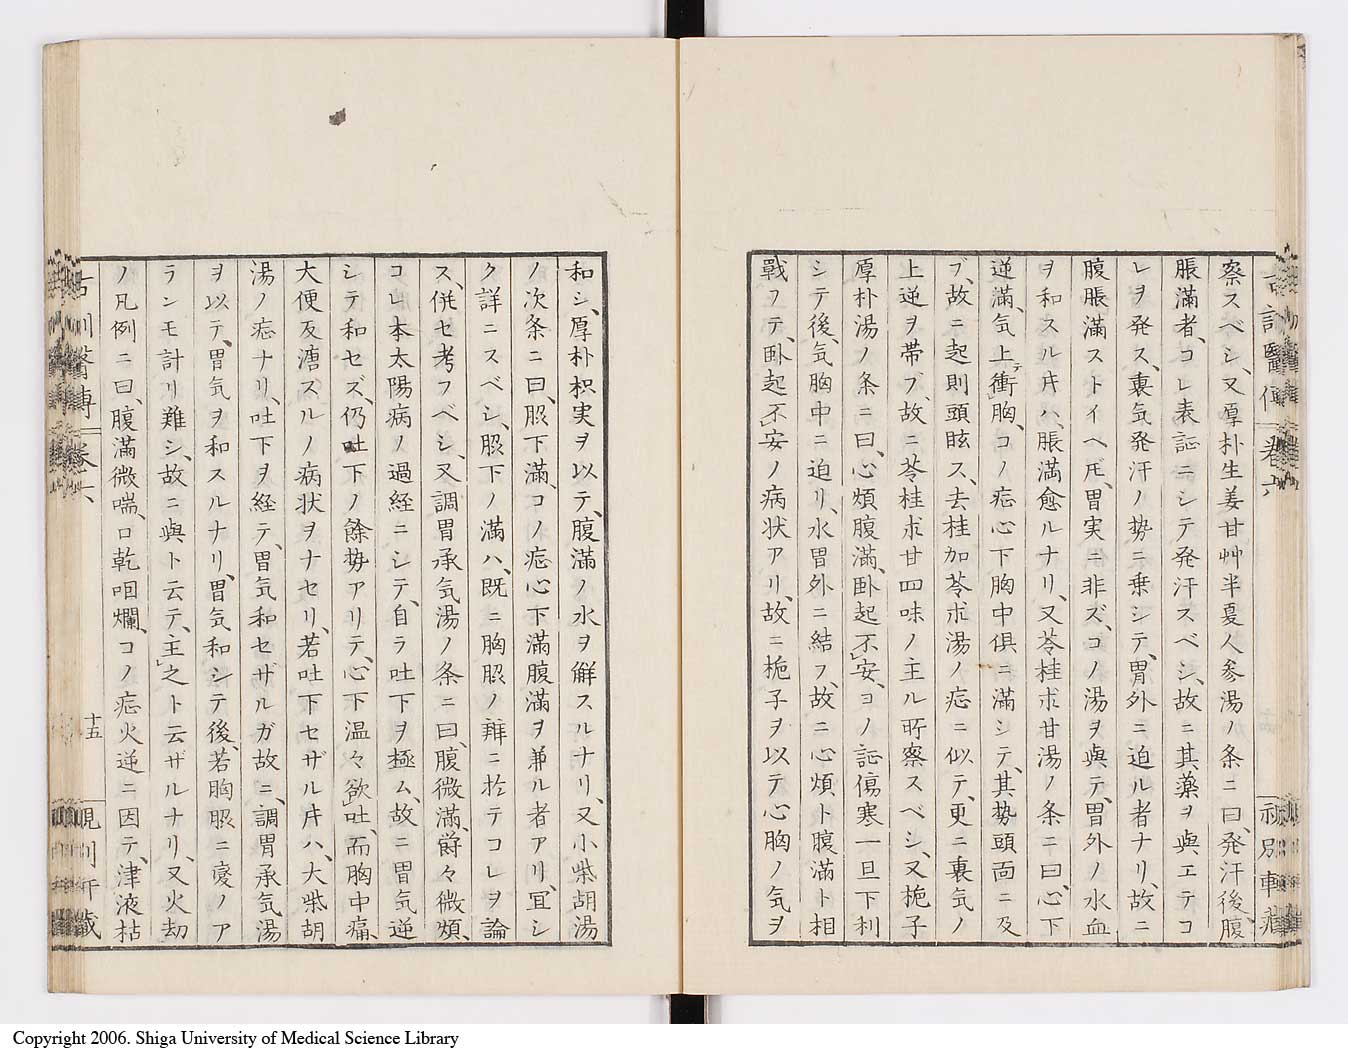 察スベシ、又厚朴生姜甘艸半夏人参湯ノ条ニ曰、発汗後、腹
脹滿者、コレ表証ニシテ発汗スベシ、故ニ其藥ヲ與エテコ
レヲ発ス、裏気発汗ノ勢ニ乗シテ、胃外ニ迫ル者ナリ、故ニ
腹脹滿ストイヘ𪜈、胃実ニ非ズ、コノ湯ヲ與テ、胃外ノ水血
ヲ和スル寸ハ、脹満愈ルナリ、又苓桂朮甘湯ノ条ニ曰、心下
逆滿、気上衝胸、コノ症心下胸中俱ニ滿シテ、其勢頭面ニ及
ブ、故ニ起則頭眩ス、去桂加苓朮湯ノ症ニ似テ、更ニ裏気ノ
上逆ヲ帯ブ、故ニ苓桂朮甘四味ノ主ル所察スベシ、又梔子
厚朴湯ノ条ニ曰、心煩腹滿、臥起不安、コノ証傷寒一旦下利
シテ後、気胸中ニ迫リ、水胃外ニ結フ、故ニ心煩ト腹滿ト相
戰フテ、臥起不安ノ病状アリ、故ニ梔子ヲ以テ心胸ノ気ヲ
和シ、厚朴枳実ヲ以テ、腹滿ノ水ヲ解スルナリ、又小柴胡湯
ノ次条ニ曰、脇下滿、コノ症心下滿腹滿ヲ兼ル者アリ、冝シ
ク詳ニスベシ、脇下ノ滿ハ、既ニ胸脇ノ辨ニ於テコレヲ論
ス、併セ考フベシ、又調胃承気湯ノ条ニ曰、腹微滿、欝々微煩、
コレ本太陽病ノ過経ニシテ、自ラ吐下ヲ極ム、故ニ胃気逆
シテ和セズ、仍吐下ノ餘勢アリテ、心下温々欲吐、而胸中痛、
大便反溏スルノ病状ヲナセリ、若吐下セザル寸ハ、大柴胡
湯ノ症ナリ、吐下ヲ経テ、胃気和セザルガ故ニ、調胃承気湯
ヲ以テ、胃気ヲ和スルナリ、胃気和シテ後、若胸脇ニ変ノア
ランモ計リ難シ、故ニ與ト云テ、主之ト云ザルナリ、又火劫
ノ凡例ニ曰、腹滿微喘、口乾咽爛、コノ症火逆ニ因テ、津液枯
十五
Copyright 2006. Shiga University of Medical Science Library